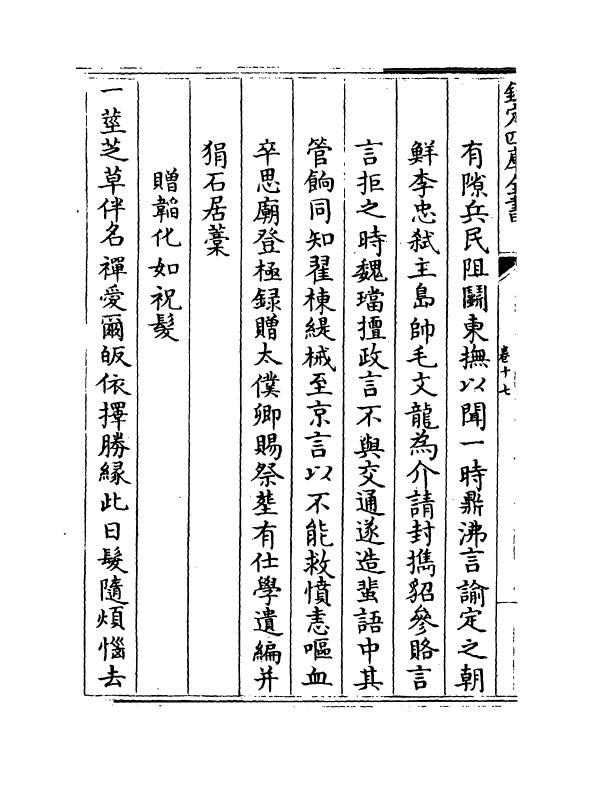 欽定四庫全書
卷十七
有隙兵民阻鬭東撫以聞一時鼎沸言諭定之朝
鮮李忠弑主島帥毛文龍為介請封擕貂參賂言
言拒之時魏璫擅政言不與交通遂造蜚語中其
管餉同知翟棟緹械至京言以不能救憤恚嘔血
卒思廟登極録贈太僕卿賜祭塟有仕學遺編并
狷石居藁
贈韜化如祝髮
一莖芝草伴名禪愛爾皈依擇勝緣此日髮隨煩惱去